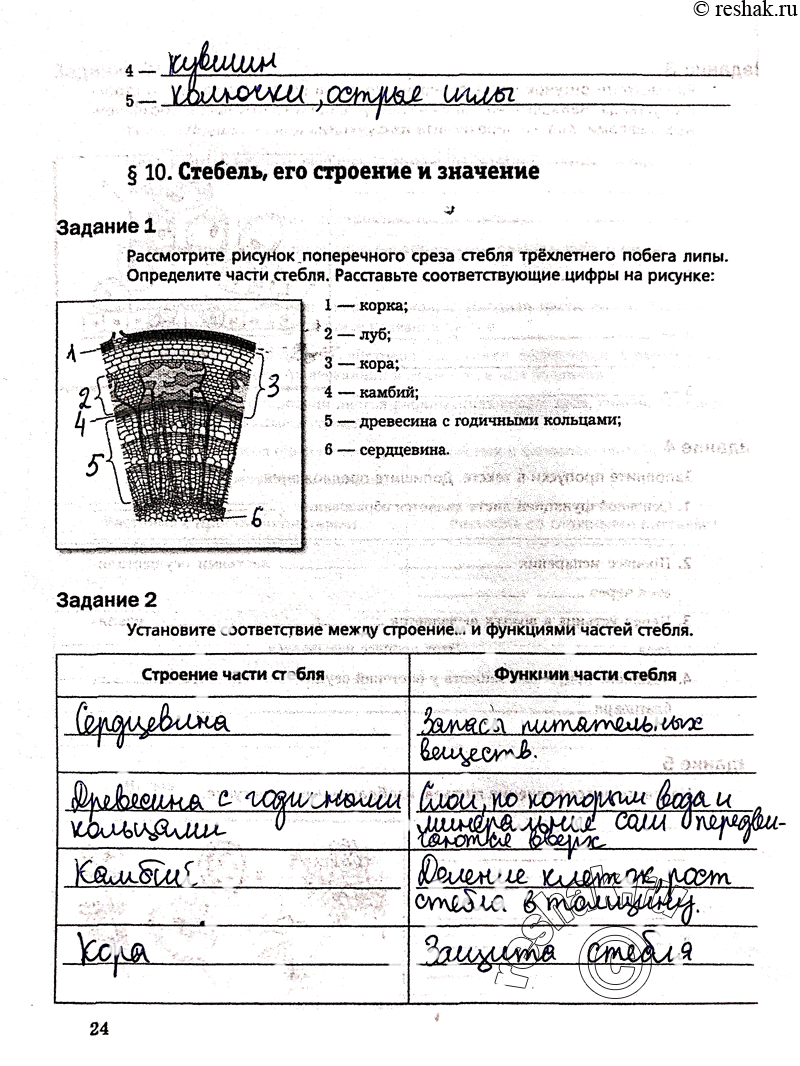 © reshak.ru
4 — кувшин
5 — колючки, острые иглы
§ 10. Стебель, его строение и значение
Задание 1
Рассмотрите рисунок поперечного среза стебля трёхлетнего побега липы.
Определите части стебля. Расставьте соответствующие цифры на рисунке:
1 — корка;
2 — луб;
3 — кора;
4 — камбий;
5 — древесина с годичными кольцами;
6 — сердцевина.
1
2
3
4
5
6
Задание 2
Установите соответствие между строение... и функциями частей стебля.
Строение части стебля
Функции части стебля
Сердцевина
Запасы питательных
веществ.
Древесина с годичными
кольцами
Слои, по которым вода и
минеральные соли передви-
гаются вверх
Камбий
Деление клеток, рост
стебля в толщину.
Кора
Защита стебля
reshak.ru
©
24